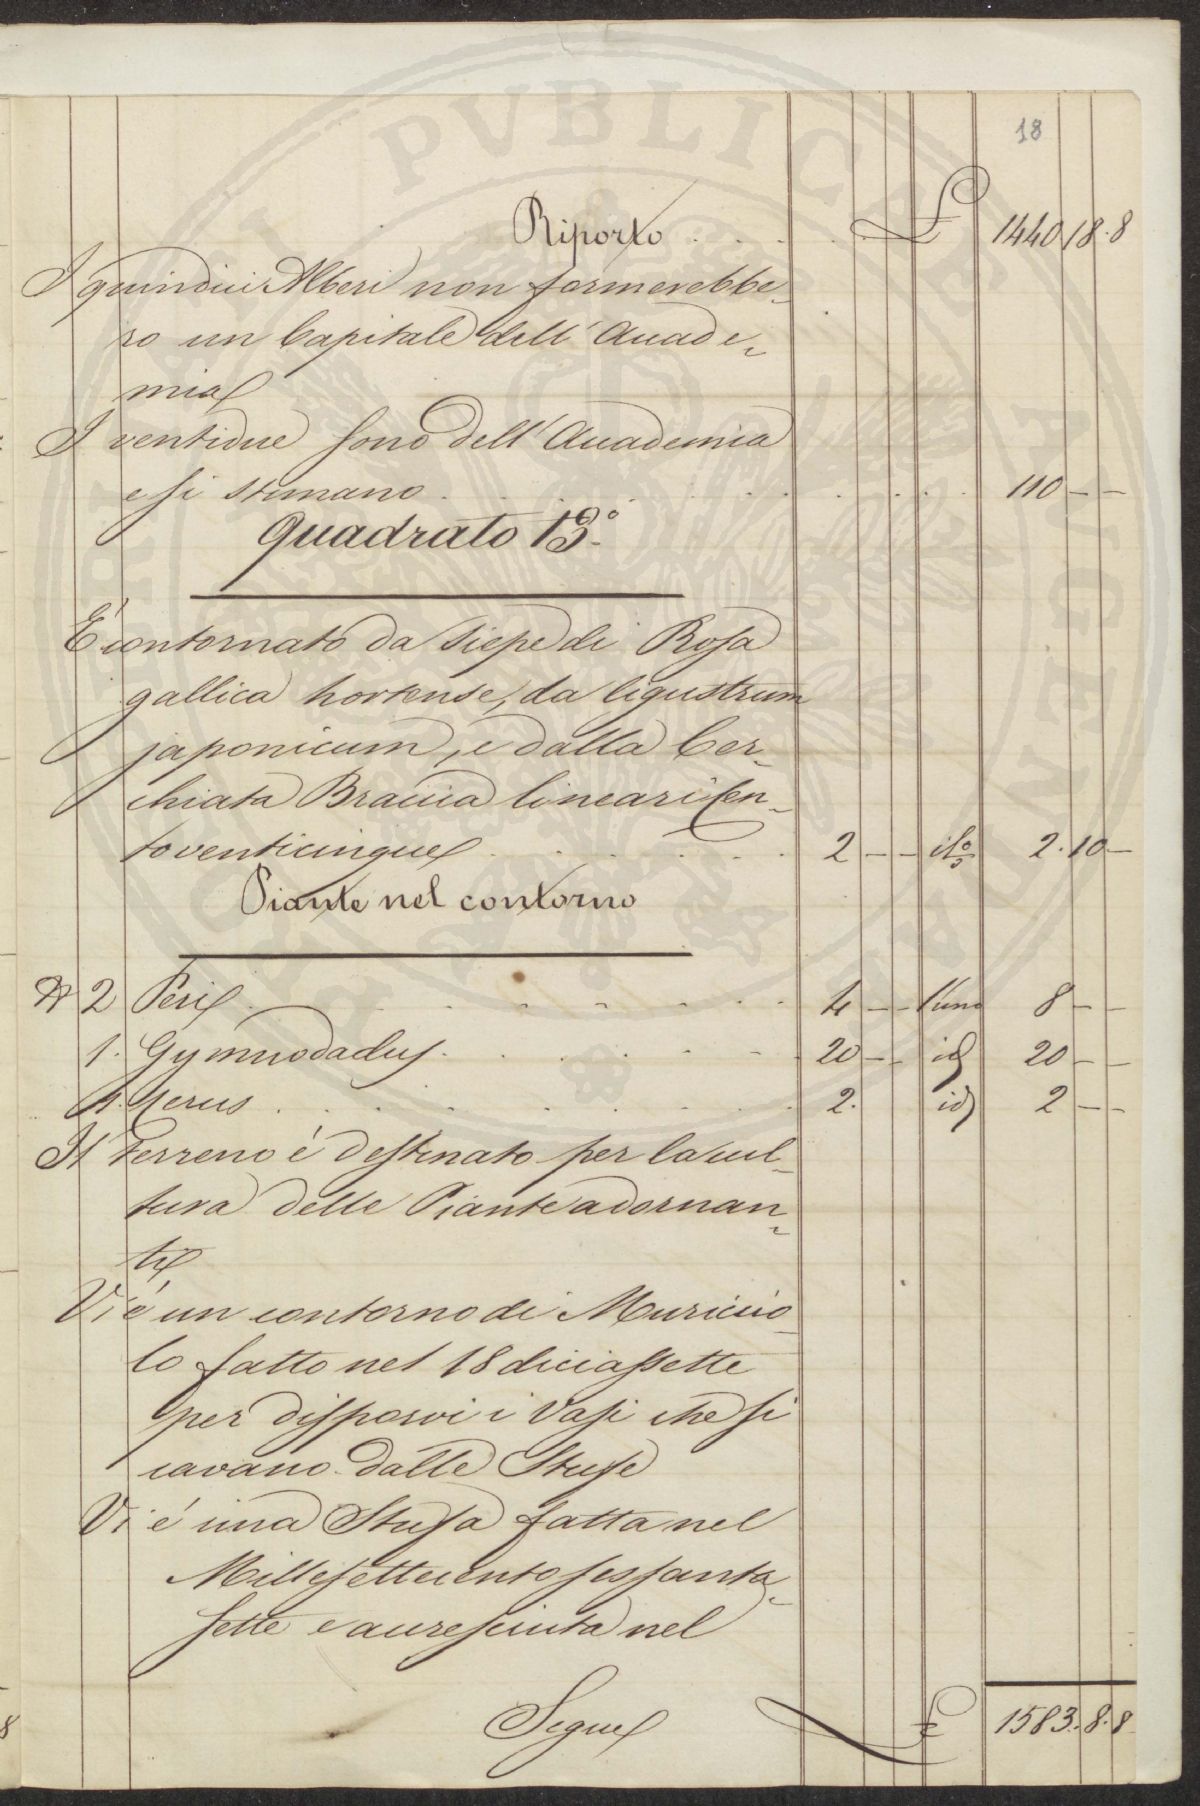 18
Riporto . . . . . £ 1440 18.8
I quindici Alberi non formerebbe-
ro un Capitale dell'Accade-
mia
I ventidue sono dell'Accademia
e si stimano . . . . . . . . . 110 – –
Quadrato 13°.
È contornato da siepe di Rosa
gallica hortense, da ligustrum
japonicum, e dalla Cer-
chiata Braccia lineari Cen-
toventicinque . . . . . . 2 – – il % 2.10 –
Piante nel contorno
N 2 Peri . . . . . . . . . 4 – – l'uno 8 – –
1. Gymnodadus . . . . . . . 20 – – id 20 – –
1. Acerus . . . . . . . . . 2. id 2 – –
Il Terreno è destinato per la cul-
tura delle Piante adornan-
ti
Vi è un contorno di Muriccio-
lo fatto nel 18 diciassette
per disporvi i Vasi che si
cavano dalle Stufe
Vi è una Stufa fatta nel
Millesettecentosessanta-
sette e accresciuta nel
Segue £ 1583.8.8
8
PVBLICAE
AVGEN